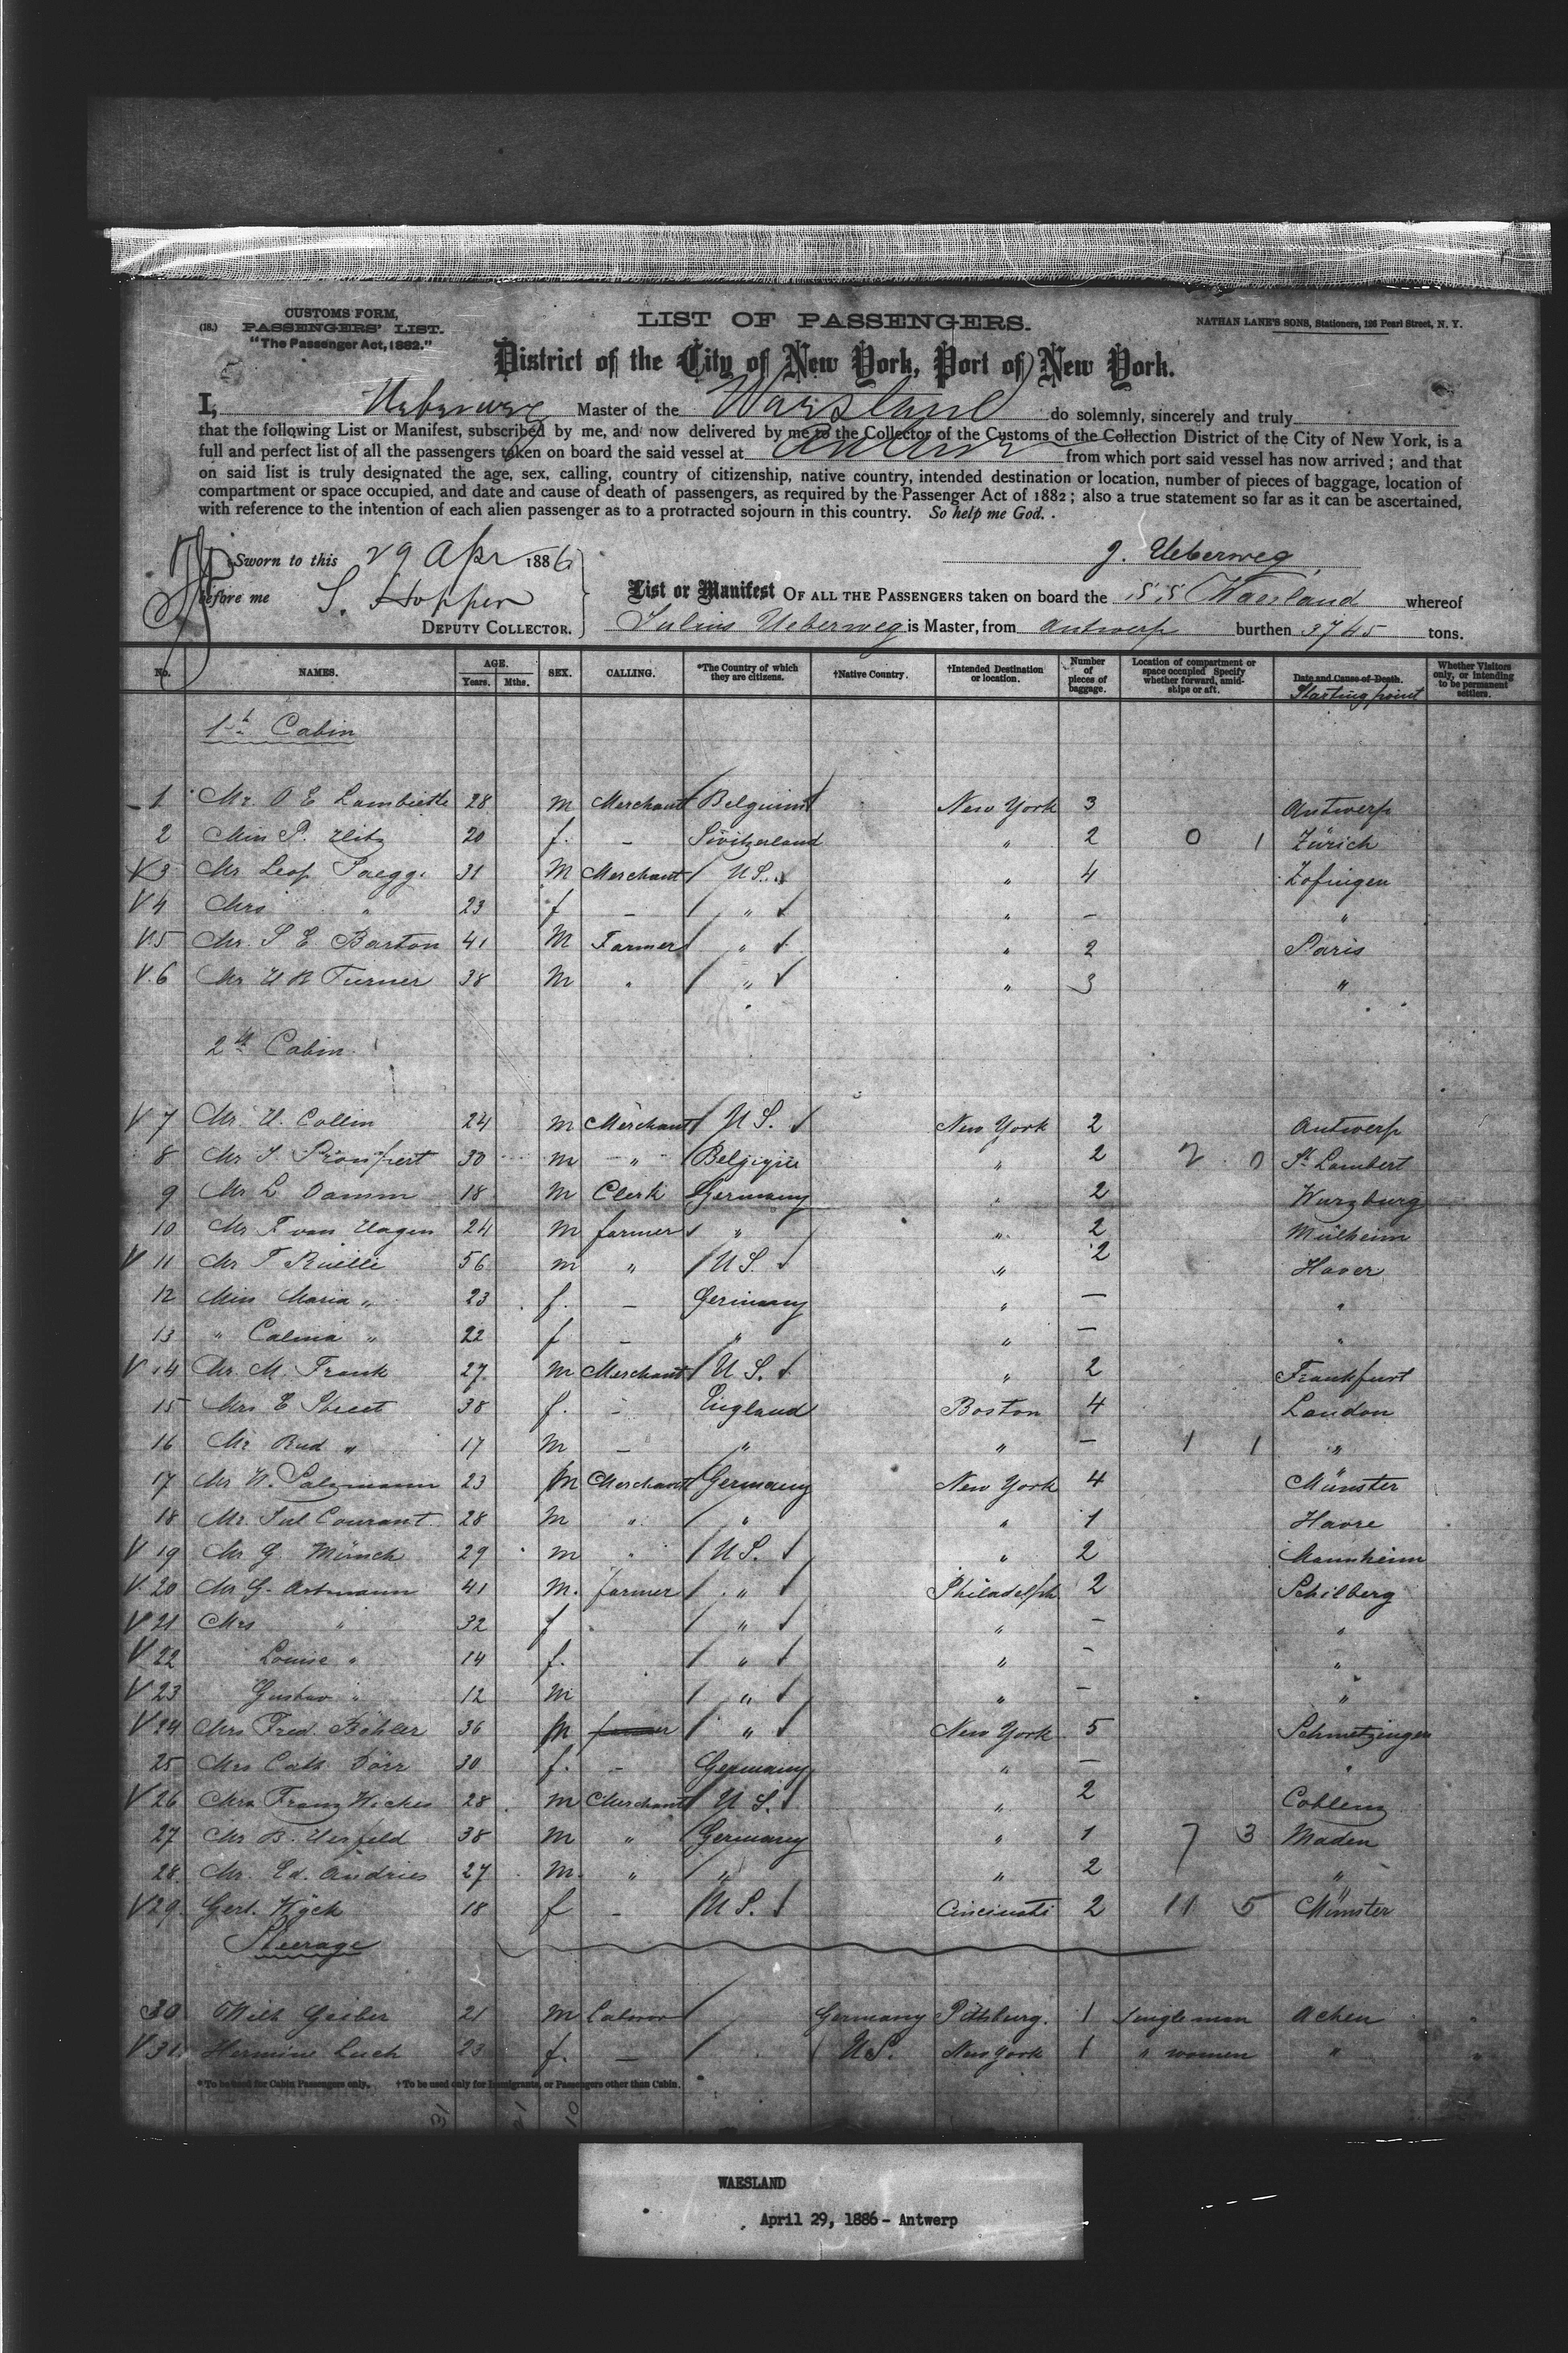 CUSTOMS FORM,
(18.) PASSENGERS' LIST.
"The Passenger Act, 1882."
LIST OF PASSENGERS.
NATHAN LANE'S SONS, Stationers, 126 Pearl Street, N. Y.
District of the City of New York, Port of New York.
I, Ueberweg Master of the Waesland do solemnly, sincerely and truly
that the following List or Manifest, subscribed by me, and now delivered by me to the Collector of the Customs of the Collection District of the City of New York, is a
full and perfect list of all the passengers taken on board the said vessel at Antwerp from which port said vessel has now arrived; and that
on said list is truly designated the age, sex, calling, country of citizenship, native country, intended destination or location, number of pieces of baggage, location of
compartment or space occupied, and date and cause of death of passengers, as required by the Passenger Act of 1882; also a true statement so far as it can be ascertained,
with reference to the intention of each alien passenger as to a protracted sojourn in this country. So help me God.
Sworn to this 29 Apr 1886
before me S. Hopper
DEPUTY COLLECTOR.
J. Ueberweg
List or Manifest OF ALL THE PASSENGERS taken on board the SS Waesland whereof
Julius Ueberweg is Master, from Antwerp burthen 3745 tons.
No. NAMES. AGE. Years. Mths. SEX. CALLING. *The Country of which they are citizens. †Native Country. †Intended Destination or location. Number of pieces of baggage. Location of compartment or space occupied Specify whether forward, amidships or aft. Date and Cause of Death. Starting point Whether Visitors only, or intending to be permanent settlers.
1st Cabin
1 Mr. O E 28 m Merchant Belguim New York 3 Antwerp
2 Miss P. 20 f. - Switzerland " 2 0 1 Zürich
V 3 Mr Leop. 31 M Merchant U S. " 4 Zofingen
V 4 Mrs " 23 f - " " - "
V 5 Mr. S E Barton 41 M Farmer " " 2 Paris
V 6 Mr U R Turner 38 M " " " 3 "
2d Cabin
V 7 Mr. U. Collin 24 m Merchant U S. New York 2 Antwerp
8 Mr 30 m " " 2 2 0 St Lambert
9 Mr L Damm 18 M Clerk Germany " 2 Wurzburg
10 Mr F von Hagen 24 m farmer " " 2 Mülheim
V 11 Mr F 56 m " U S. " 2
12 Miss Maria " 23 f. - Germany " - "
13 " " 22 f - " " - "
V 14 Mr. M. Frank 27 m Merchant U S. " 2 Frankfurt
15 Mrs E Street 38 f. - England Boston 4 London
16 Mr Rud " 17 m - " " - 1 1 "
17 Mr W. Salzmann 23 m Merchant Germany New York 4 Münster
18 Mr. Jul Courant 28 m " " " 1 Havre
V 19 Mr G. Münch 29 m " U S. " 2 Mannheim
V 20 Mr G. Artmann 41 m. farmer " Philadelph 2 Schilberg
V 21 Mrs " 32 f " " - "
V 22 Louise " 14 f. " " - "
V 23 Gustav " 12 m " " - "
V 24 Mrs Fred. Böhler 36 m farmer " New York 5 Schwetzingen
25 Mrs Cath Dörr 30 f. - Germany " - "
V 26 Franz Wickes 28 m Merchant U S. " 2 Coblenz
27 Mr B. 38 m " Germany " 1 7 3 Maden
28 Mr. Ed. Andries 27 m. " " " 2 "
V 29 Gert. 18 f - U S. Cincinati 2 11 5 Münster
Steerage
30 Wilh Geiber 21 m Labour Germany Pittsburg. 1 single men Achen
V 31 Hermine Luch 23 f. - U.S. New York 1 " women "
*To be used for Cabin Passengers only. †To be used only for Immigrants, or Passengers other than Cabin.
31 21 10
WAESLAND
April 29, 1886 - Antwerp